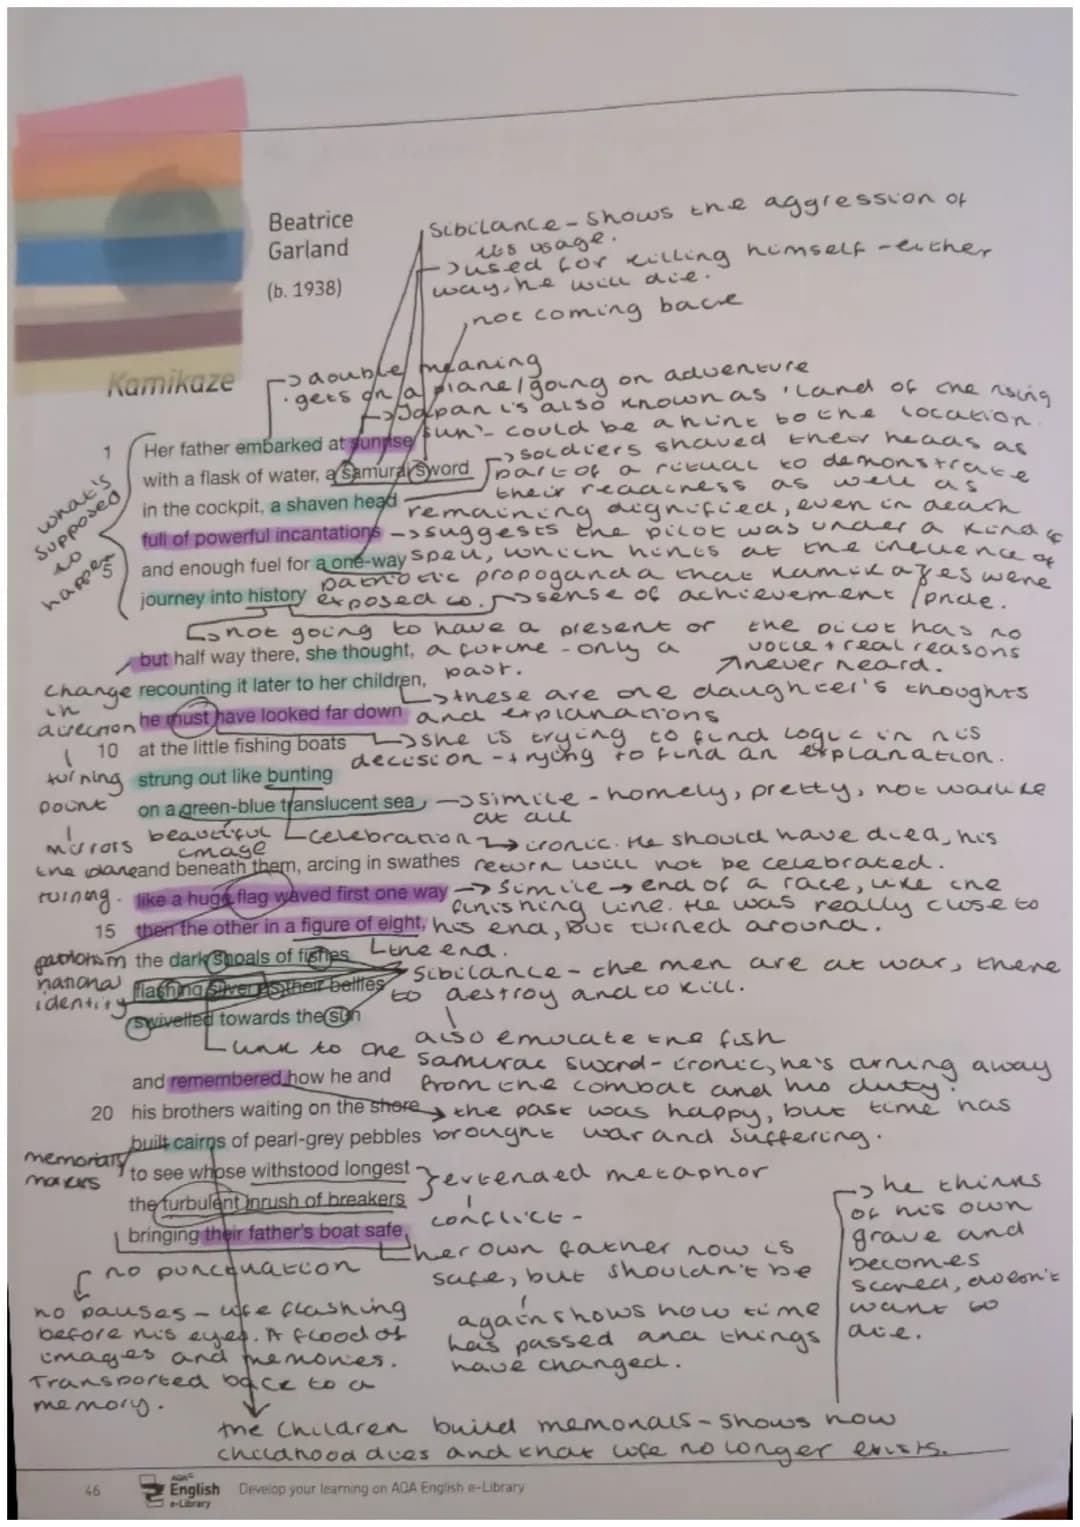 Beatrice
Garland
(b. 1938)
Sibilance - shows the aggression of
its usage.
→ used for killing himself - either
way, he will die.
not coming back
Kamikaze
→ double meaning
· gets on a plane / going on adventure
→ Japan is also known as 'Land of the rising
sun' - could be a hint to the location.
1 Her father embarked at sunrise
with a flask of water, a samurai sword
in the cockpit, a shaven head
full of powerful incantations
5 and enough fuel for a one-way
journey into history
what's
supposed
to
happen
→ soldiers shaved their heads as
part of a ritual to demonstrate
their readiness as well as
remaining dignified, even in death
→ suggests the pilot was under a kind of
spell, which hints at the inluence of
patriotic propoganda that kamikazes were
exposed to. → sense of achievement / pride.
→ not going to have a present or
a future - only a
past.
the pilot has no
voice + real reasons
never heard.
but half way there, she thought,
recounting it later to her children,
he must have looked far down
10 at the little fishing boats
strung out like bunting
on a green-blue translucent sea
change
in
direction
turning
point
mirrors
the plane
turning.
→ these are the daughter's thoughts
and explanations
→ she is trying to find logic in his
decision - trying to find an explanation.
→ simile - homely, pretty, not warlike
at all
beautiful
image
celebration → ironic. He should have died, his
return will not be celebrated.
and beneath them, arcing in swathes
like a huge flag waved first one way
15 then the other in a figure of eight,
the dark shoals of fishes
flashing silver as their bellies
swivelled towards the sun
→ simile → end of a race, like the
finishing line. He was really close to
his end, but turned around.
the end.
patriotism
national
identity
Sibilance - the men are at war, there
to destroy and to kill.
also emulate the fish
Link to the
samurai sword - ironic, he's turning away
from the combat and his duty.
and remembered how he and
20 his brothers waiting on the shore
built cairns of pearl-grey pebbles
to see whose withstood longest
the turbulent inrush of breakers
bringing their father's boat safe
→ the past was happy, but time has
brought war and suffering.
memorial
makers
extended metaphor
conflict -
her own father now is
safe, but shouldn't be
again shows how time
has passed and things
have changed.
→ he thinks
of his own
grave and
becomes
scared, doesn't
want to
die.
no punctuation
no pauses - life flashing
before his eyes. A flood of
images and memories.
Transported back to a
memory.
the children build memorials - shows how
childhood dies and that life no longer exists.
46
AQA
English
e-Library
Develop your learning on AQA English e-Library